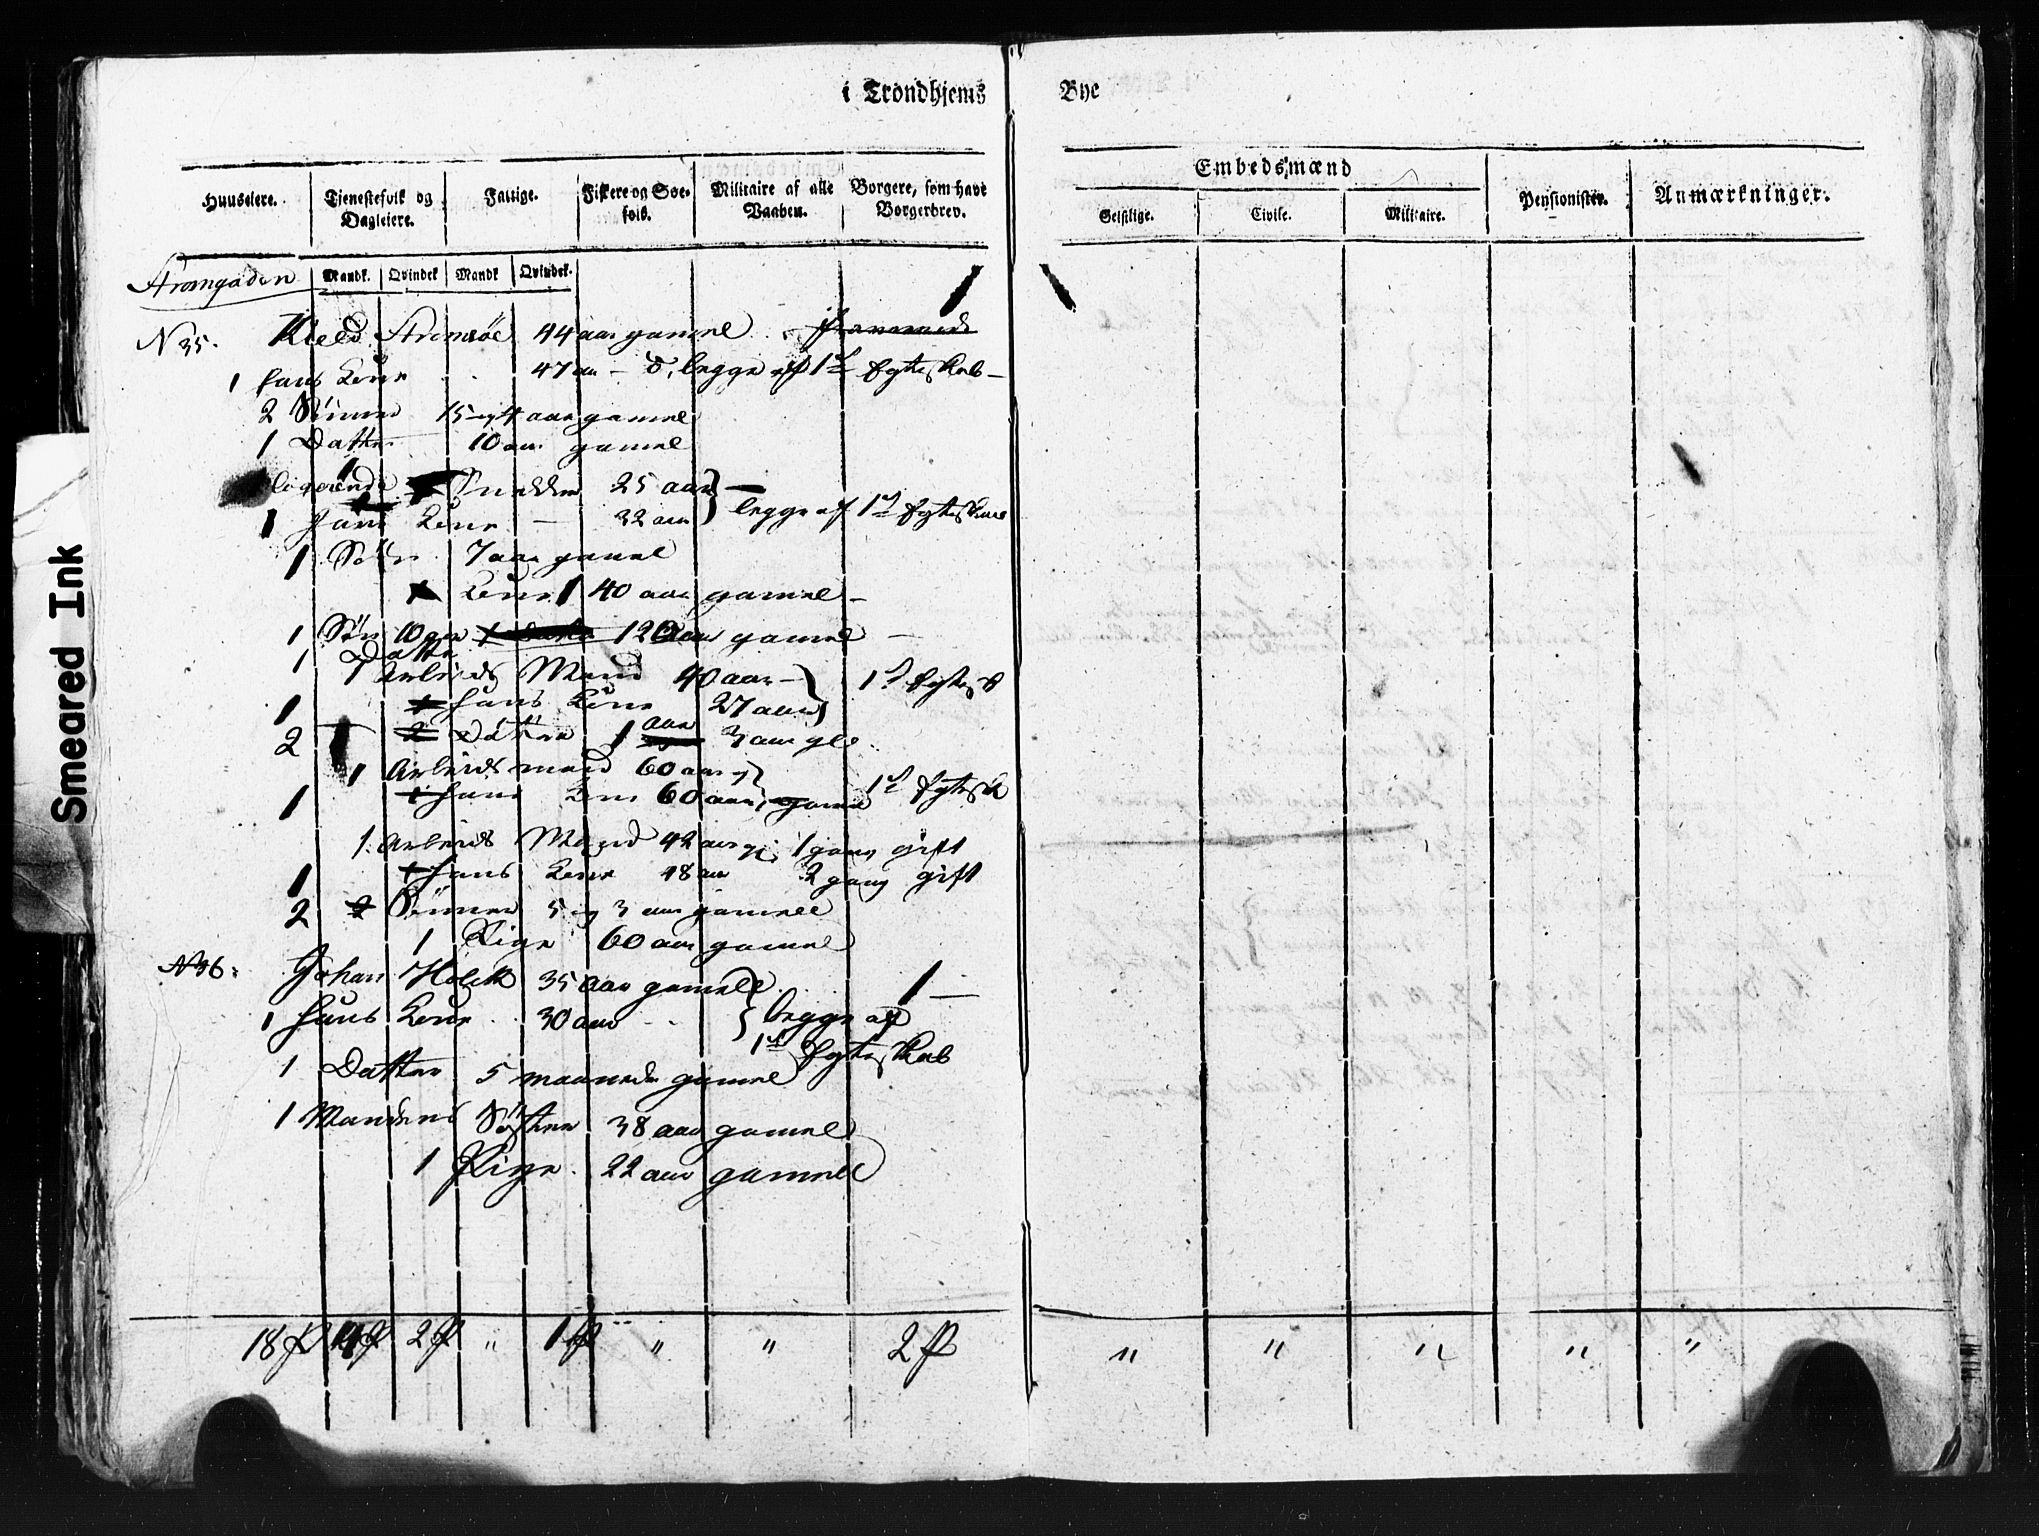 i Trondhjems Bye
Huuseiere. Tjenestefolk og Dagleiere. Fattige. Fiskere og Søe-folk. Militaire af alle Vaaben. Borgere, som have Borgerbrev. Embedsmænd Pensionister. Anmærkninger.
Geistlige. Civile. Militaire.
Mandk. Qvindek Mandk Qvindek.
Strømgaden
N 35. Kield Strømsøe 44 aar gamel
1 hans Kone 47 aar - d, begge af 1st Egteskab -
2 Sönner 15 og 4 aar gamel
1 Datter 10 aar gamel
logerende 1 Snedker 25 aar
1 hans Kone - 32 aar begge af 1st Egteskab
1 Søn 7 aar gamel
Kone 1 40 aar gamel -
1 Søn 10 12 aar gamel -
1 Datter
1 Arbeids Mand 40 aar - 1st Egtes
1 hans Kone 27 aar
2 Döttre 1 aar 3 aar gl
1 Arbeidsmand 60 aar 1st Egtesk
1 hans Kone 60 aar
1. Arbeids Mand 42 aar g 1 gang gift
1 hans Kone 48 aar 2 gang gift
2 Sönner 5 og 3 aar gamele
1 Pige 60 aar gamel
N 36. Johan Holck 35 aar gamel 1 -
1 hans Kone 30 aar begge af
1st Egteskab
1 Datter 5 maaneder gamel
1 Mandens Søster 38 aar gamel
1 Pige 22 aar gamel
18 P 4 P 2 P " 1 P " " 2 P " " " " "
Smeared Ink